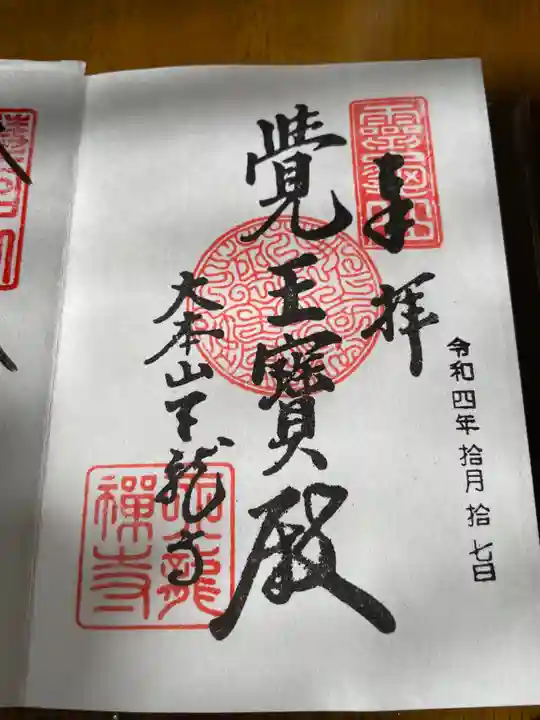 奉拝
令和四年拾月拾七日
覺王寶殿
大本山天龍寺
靈龜山
天龍禅寺